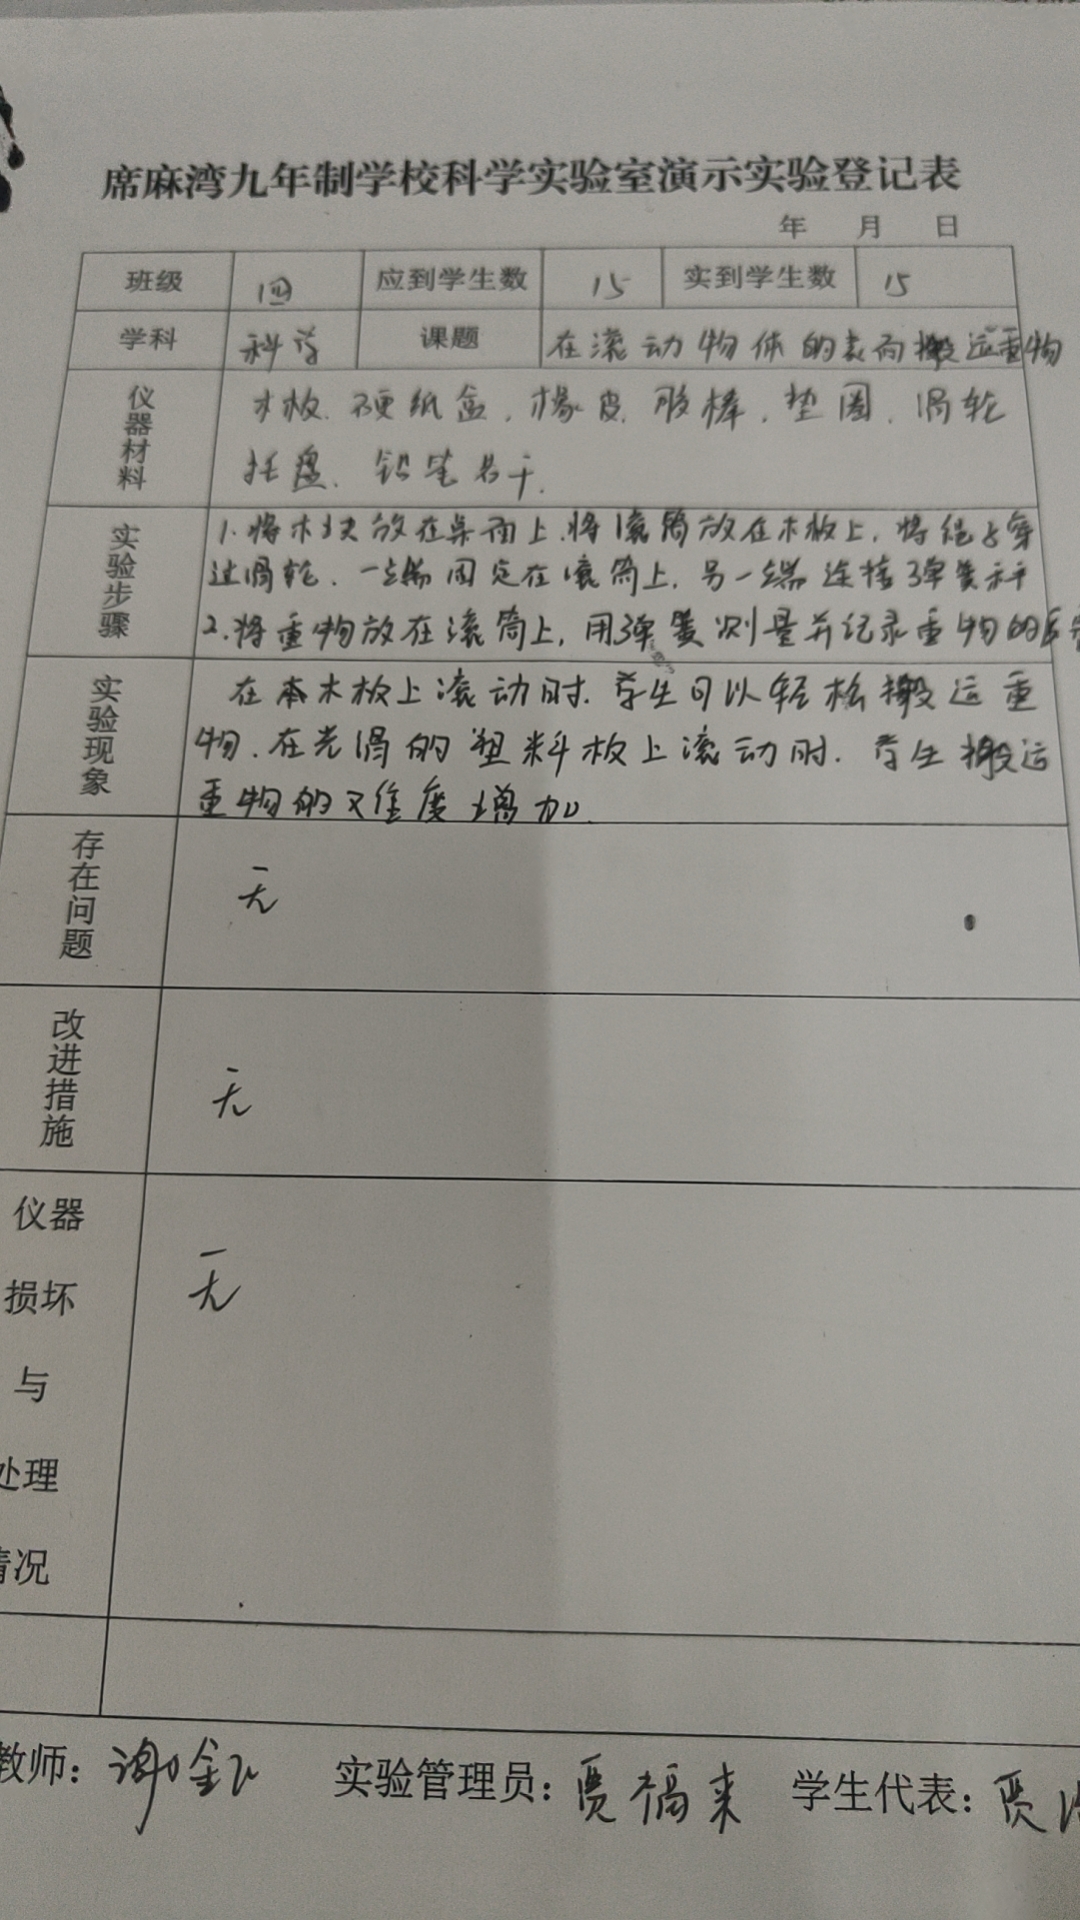 席麻湾九年制学校科学实验室演示实验登记表
年 月 日
班级 四 应到学生数 15 实到学生数 15
学科 科学 课题 在滚动物体的表面搬运重物
仪器材料 木板、硬纸盒、橡皮、胶棒、垫圈、滑轮
托盘、铅笔若干.
实验步骤 1.将木块放在桌面上,将滚筒放在木板上,将绳子穿
过滑轮、一端固定在滚筒上,另一端连接弹簧秤
2.将重物放在滚筒上,用弹簧测量并记录重物的
实验现象 在本木板上滚动时.学生可以轻松搬运重
物.在光滑的塑料板上滚动时.学生搬运
重物的难度增加.
存在问题 无
改进措施 无
仪器
损坏 无
与
处理
情况
教师: 谢 实验管理员: 贾福来 学生代表: 贾